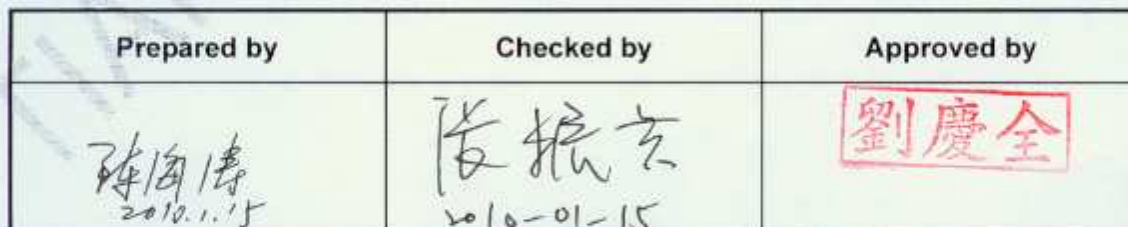 Prepared by
Checked by
Approved by
陈海涛
2010.1.15
振
2010-01-15
劉慶全